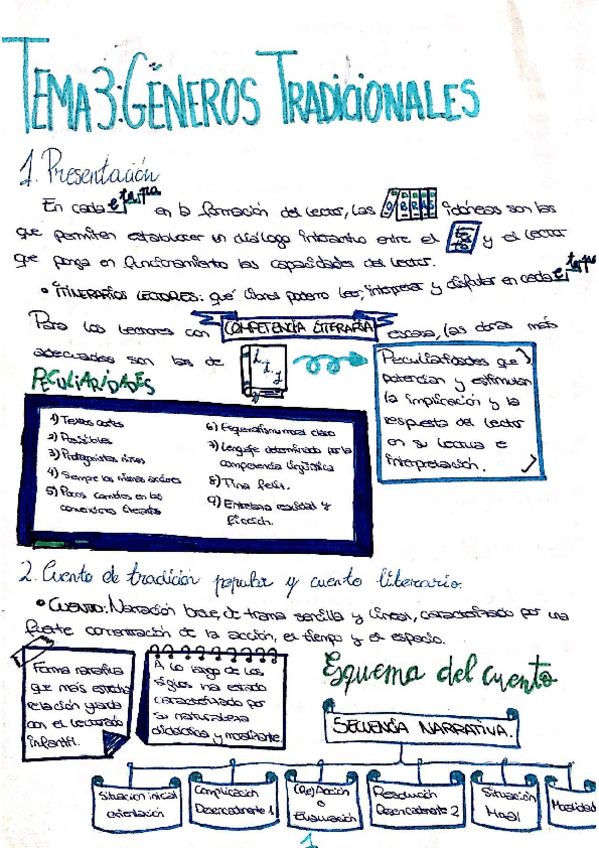 TEMA 3: GÉNEROS TRADICIONALES
1. Presentación
En cada etapa en la formación del lector, las OBRAS idóneas son las
que permiten establecer un diálogo interactivo entre el texto y el lector
que ponga en funcionamiento las capacidades del lector.
• ITINERARIOS LECTORES: qué libros podemos leer, interpretar y disfrutar en cada etapa
Para los lectores con COMPETENCIA LITERARIA escasa, las obras más
adecuadas son las de L.I.J
PECULIARIDADES
Peculiaridades que
potencian y estimulan
la implicación y la
respuesta del lector
en su lectura e
interpretación.
1) Textos cortos
2) Posibles
3) Protagonistas niños
4) Siempre los mismos actores
5) Pocos cambios en las
convenciones literarias
6) Esquematismo moral claro
7) Lenguaje determinado por la
competencia lingüística
8) Final feliz.
9) Entrelaza realidad y
ficción.
2. Cuento de tradición popular y cuento literario.
• CUENTO: Narración breve, de trama sencilla y lineal, caracterizado por una
fuerte concentración de la acción, el tiempo y el espacio.
Forma narrativa
que más estrecha
relación guarda
con el lectorado
infantil.
A lo largo de los
siglos ha estado
caracterizado por
su naturaleza
didáctica y moralizante.
Esquema del cuento
SECUENCIA NARRATIVA.
Situación inicial
orientación
Complicación
Desencadenante 1
(Re)Acción
o
Evaluación
Resolución
Desencadenante 2
Situación
final
Moralidad
1